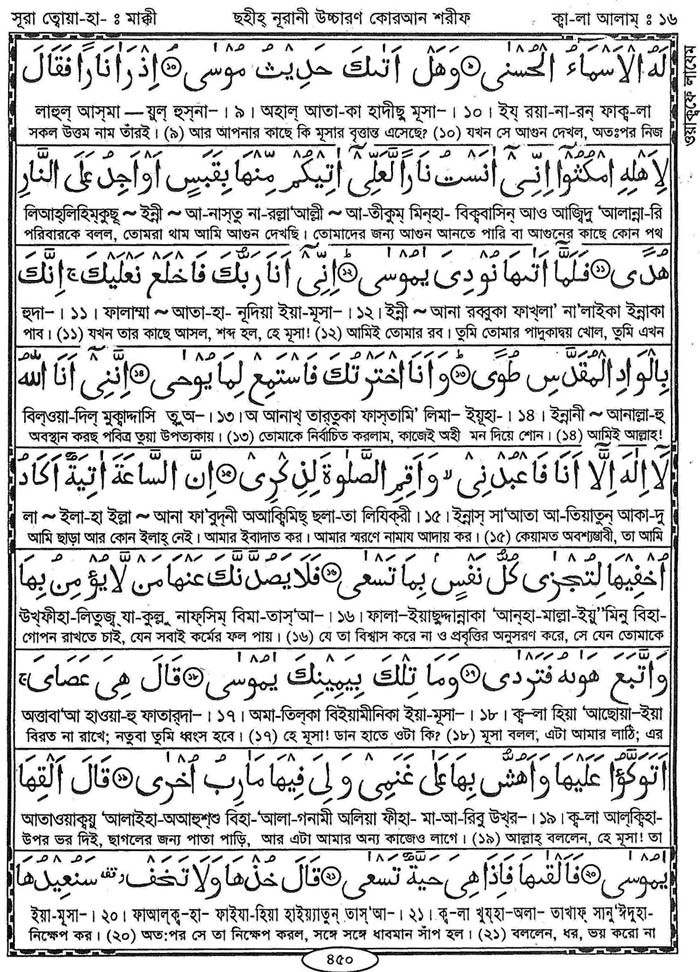 সূরা ত্বোয়া-হা- ঃ মাক্কী ছহীহ্ নূরানী উচ্চারণ কোরআন শরীফ ক্বা-লা আলাম্ ঃ ১৬
لَهُ الْاَسْمَآءُ الْحُسْنٰى ۝ وَهَلْ اَتٰىكَ حَدِيْثُ مُوْسٰى ۝ اِذْ رَاٰ نَارًا فَقَالَ
লাহুল্ আস্মা — য়ুল্ হুস্না-। ৯। অহাল্ আতা-কা হাদীছু মূসা-। ১০। ইয্ রয়া-না-রন্ ফাক্ব-লা
সকল উত্তম নাম তাঁরই। (৯) আর আপনার কাছে কি মূসার বৃত্তান্ত এসেছে? (১০) যখন সে আগুন দেখল, অতঃপর নিজ
لِاَهْلِهِ امْكُثُوْٓا اِنِّىْٓ اٰنَسْتُ نَارًا لَّعَلِّىْٓ اٰتِيْكُمْ مِّنْهَا بِقَبَسٍ اَوْ اَجِدُ عَلَى النَّارِ
লিআহ্লিহিম্কুছূ ~ ইন্নী ~ আ-নাস্তু না-রল্লা'আল্লী ~ আ-তীকুম্ মিন্হা- বিক্ববাসিন্ আও আজিদু 'আলান্না-রি
পরিবারকে বলল, তোমরা থাম আমি আগুন দেখছি। তোমাদের জন্য আগুন আনতে পারি বা আগুনের কাছে কোন পথ
هُدًى ۝ فَلَمَّآ اَتٰىهَا نُوْدِىَ يٰمُوْسٰى ۝ اِنِّىْٓ اَنَا رَبُّكَ فَاخْلَعْ نَعْلَيْكَ ۚ اِنَّكَ
হুদা-। ১১। ফালাম্মা ~ আতা-হা- নূদিয়া ইয়া-মূসা-। ১২। ইন্নী ~ আনা রব্বুকা ফাখ্লা' না'লাইকা ইন্নাকা
পাব। (১১) যখন তার কাছে আসল, শব্দ হল, হে মূসা! (১২) আমিই তোমার রব। তুমি তোমার পাদুকাদ্বয় খোল, তুমি এখন
بِالْوَادِ الْمُقَدَّسِ طُوًى ۝ وَاَنَا اخْتَرْتُكَ فَاسْتَمِعْ لِمَا يُوْحٰى ۝ اِنَّنِىْٓ اَنَا اللّٰهُ
বিল্ওয়া-দিল্ মুক্বাদ্দাসি তুওয়া-। ১৩। অ আনাখ্ তার্তুকা ফাস্তামি' লিমা- ইয়ূহা-। ১৪। ইন্নানী ~ আনাল্লা-হু
অবস্থান করছ পবিত্র তুয়া উপত্যকায়। (১৩) তোমাকে নির্বাচিত করলাম, কাজেই অহী মন দিয়ে শোন। (১৪) আমিই আল্লাহ!
لَآ اِلٰهَ اِلَّآ اَنَا فَاعْبُدْنِىْ ۙ وَاَقِمِ الصَّلٰوةَ لِذِكْرِىْ ۝ اِنَّ السَّاعَةَ اٰتِيَةٌ اَكَادُ
লা ~ ইলা-হা ইল্লা ~ আনা ফা'বুদ্নী অআক্বিমিছ্ ছলা-তা লিযিক্রী। ১৫। ইন্নাস্ সা'আতা আ-তিয়াতুন্ আকা-দু
আমি ছাড়া আর কোন ইলাহ্ নেই। আমার ইবাদাত কর। আমার স্মরণে নামায আদায় কর। (১৫) কেয়ামত অবশ্যম্ভাবী, তা আমি
اُخْفِيْهَا لِتُجْزٰى كُلُّ نَفْسٍۭ بِمَا تَسْعٰى ۝ فَلَا يَصُدَّنَّكَ عَنْهَا مَنْ لَّا يُؤْمِنُ بِهَا
উখ্ফীহা-লিতুজ্ যা-কুল্লু নাফ্সিম্ বিমা-তাস্'আ-। ১৬। ফালা-ইয়াছুদ্দান্নাকা 'আন্হা-মাল্লা-ইয়ু"মিনু বিহা-
গোপন রাখতে চাই, যেন সবাই কর্মের ফল পায়। (১৬) যে তা বিশ্বাস করে না ও প্রবৃত্তির অনুসরণ করে, সে যেন তোমাকে
وَاتَّبَعَ هَوٰىهُ فَتَرْدٰى ۝ وَمَا تِلْكَ بِيَمِيْنِكَ يٰمُوْسٰى ۝ قَالَ هِىَ عَصَاىَ ۚ
অত্তাবা'আ হাওয়া-হু ফাতার্দা-। ১৭। অমা-তিল্কা বিইয়ামীনিকা ইয়া-মূসা-। ১৮। ক্ব-লা হিয়া 'আছোয়া-ইয়া
বিরত না রাখে; নতুবা তুমি ধ্বংস হবে। (১৭) হে মূসা! ডান হাতে ওটা কি? (১৮) মূসা বলল, এটা আমার লাঠি; এর
اَتَوَكَّؤُا عَلَيْهَا وَاَهُشُّ بِهَا عَلٰى غَنَمِىْ وَلِىَ فِيْهَا مَاٰرِبُ اُخْرٰى ۝ قَالَ اَلْقِهَا
আতাওয়াক্বয়ু 'আলাইহা-অআহুশ্শু বিহা-'আলা-গনামী অলিয়া ফীহা- মা-আ-রিবু উখ্র-। ১৯। ক্ব-লা আল্ক্বিহা-
উপর ভর দিই, ছাগলের জন্য পাতা পাড়ি, আর এটা আমার অন্য কাজেও লাগে। (১৯) আল্লাহ্ বললেন, হে মূসা! তা
يٰمُوْسٰى ۝ فَاَلْقٰىهَا فَاِذَا هِىَ حَيَّةٌ تَسْعٰى ۝ قَالَ خُذْهَا وَلَا تَخَفْ ۥ سَنُعِيْدُهَا
ইয়া-মূসা-। ২০। ফাআল্ক্ব-হা- ফাইযা-হিয়া হাইয়্যাতুন্ তাস্'আ-। ২১। ক্ব-লা খুয্হা-অলা- তাখাফ্ সানু'ঈদুহা-
নিক্ষেপ কর। (২০) অত:পর সে তা নিক্ষেপ করল, সঙ্গে সঙ্গে ধাবমান সাঁপ হল। (২১) বললেন, ধর, ভয় করো না
৪৫০